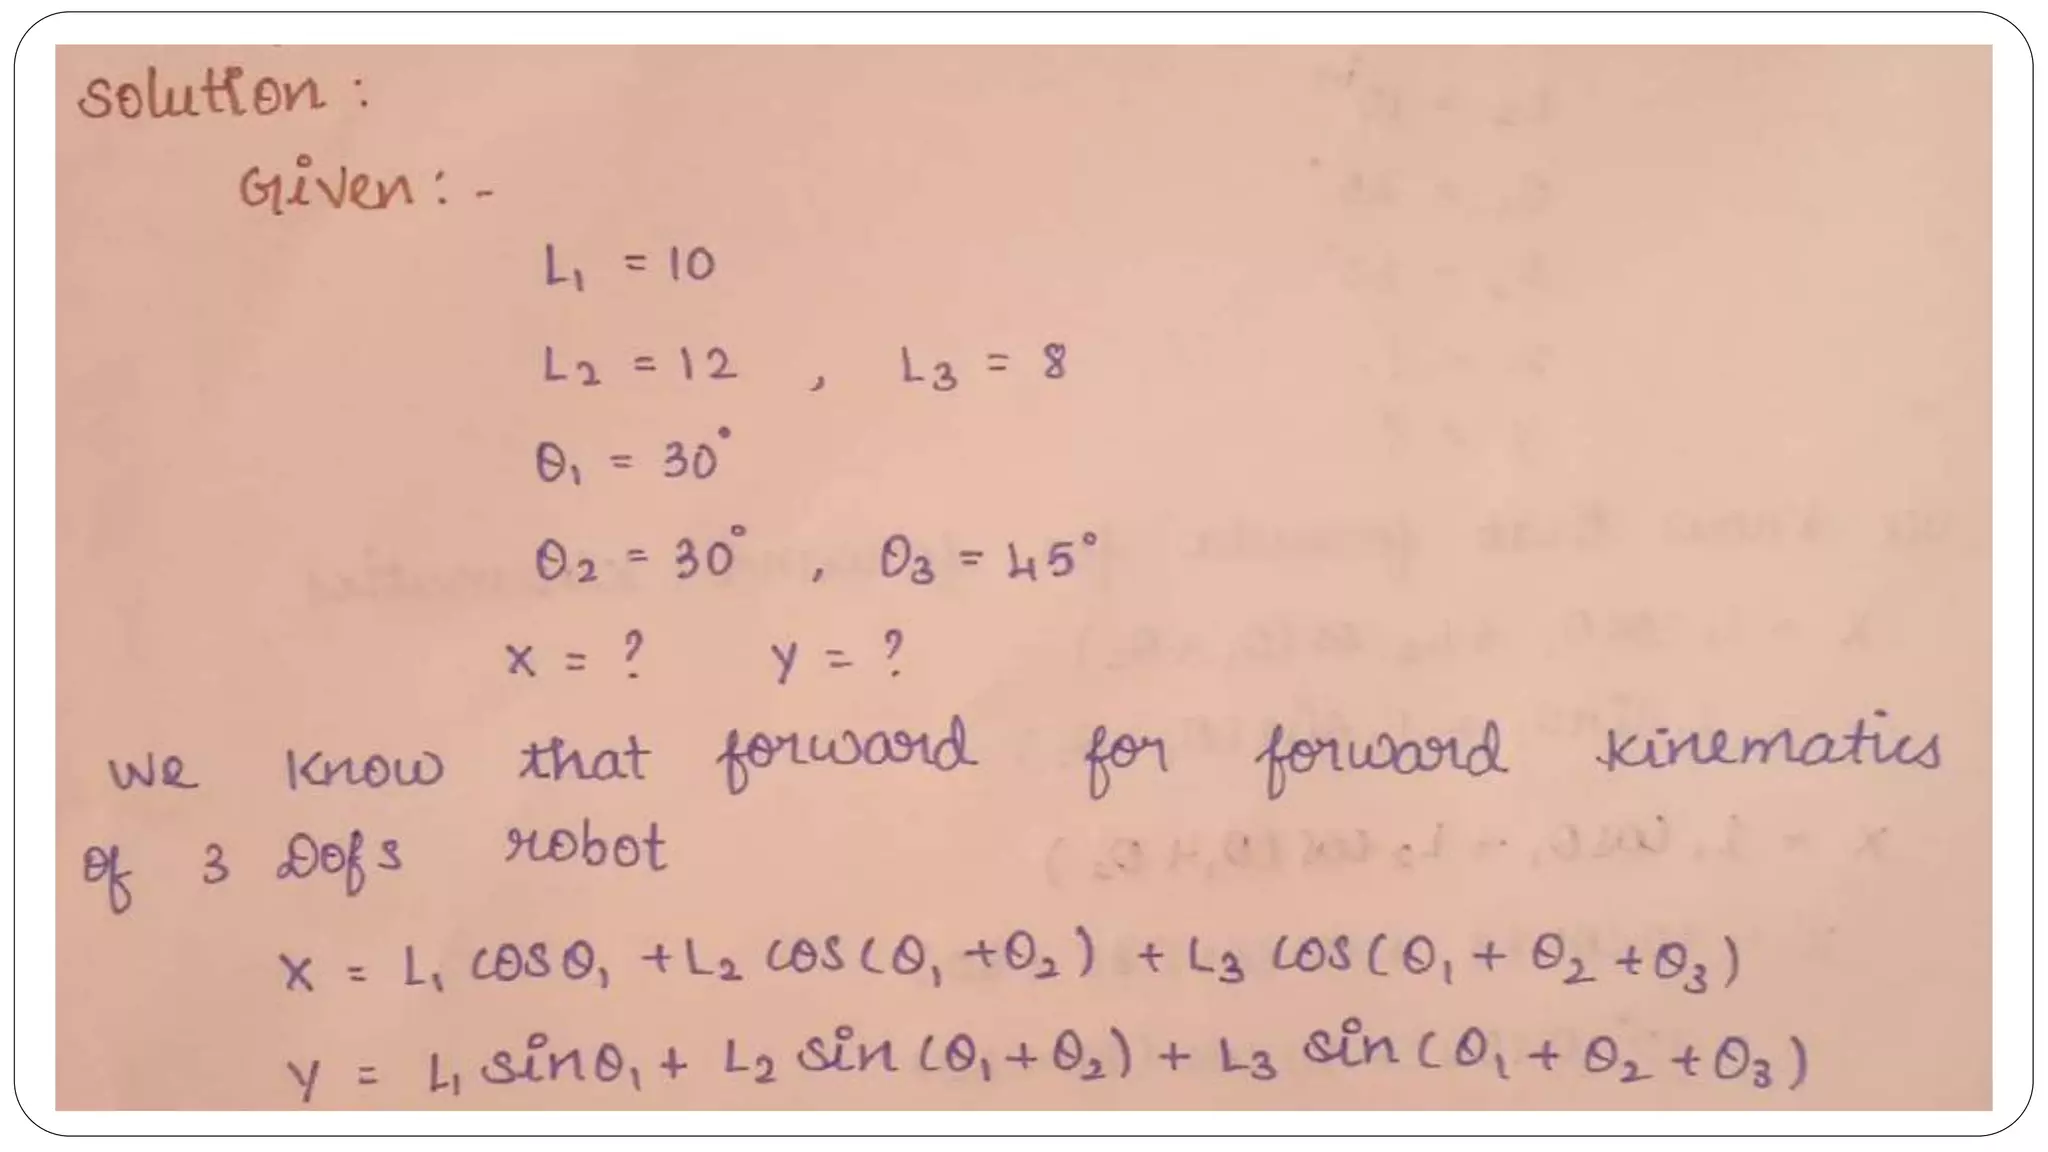 Solution :
Given : -
L₁ = 10
L₂ = 12 , L₃ = 8
θ₁ = 30°
θ₂ = 30° , θ₃ = 45°
x = ? y = ?
We know that forward for forward kinematics
of 3 Dofs robot
x = L₁ cosθ₁ + L₂ cos(θ₁ + θ₂) + L₃ cos(θ₁ + θ₂ + θ₃)
y = L₁ sinθ₁ + L₂ sin(θ₁ + θ₂) + L₃ sin(θ₁ + θ₂ + θ₃)